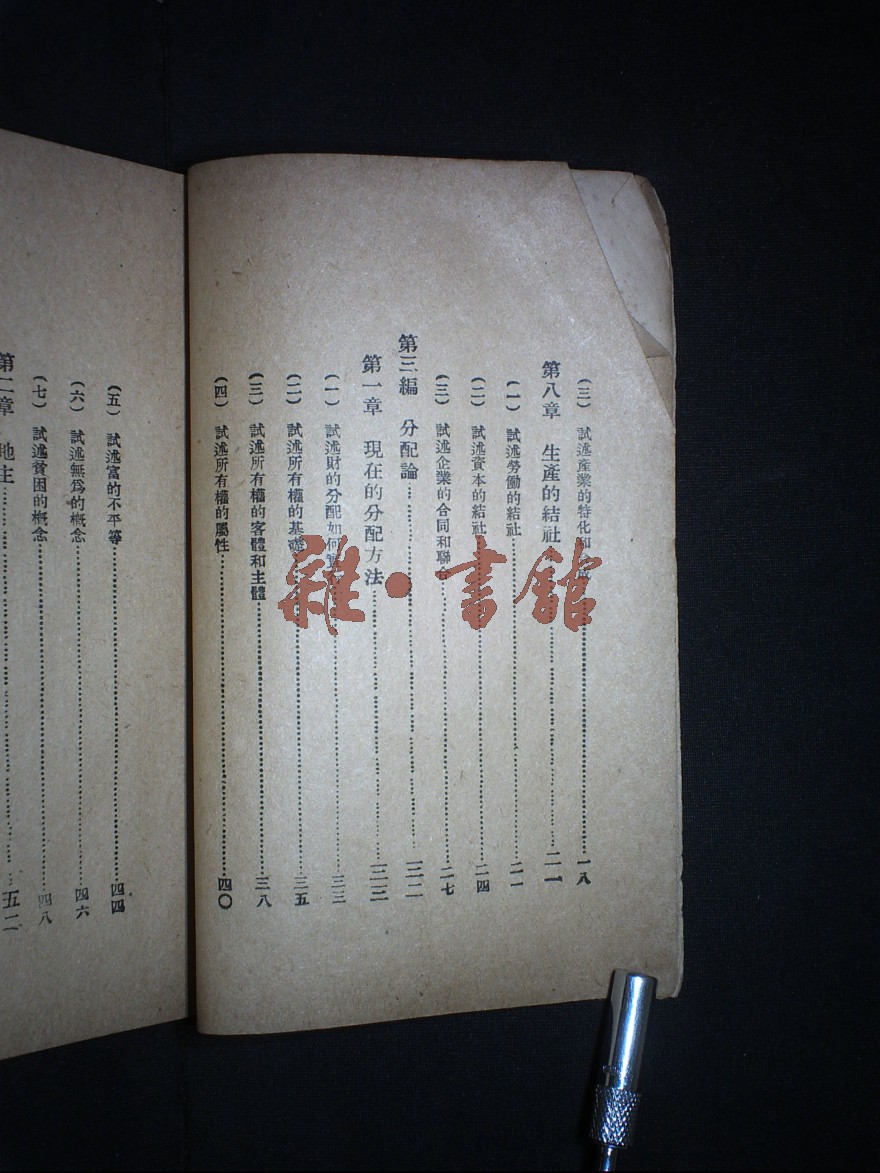 (三) 試述產業的特化和……一八
第八章 生產的結社……二一
(一) 試述勞働的結社……二一
(二) 試述資本的結社……二四
(三) 試述企業的合同和聯合……二七
第三編 分配論……三二
第一章 現在的分配方法……三三
(一) 試述財的分配如何……三三
(二) 試述所有權的基礎……三五
(三) 試述所有權的客體和主體……三八
(四) 試述所有權的屬性……四〇
(五) 試述富的不平等……四四
(六) 試述無爲的概念……四六
(七) 試述貧困的概念……四八
第二章 地主……五二
雜·書館